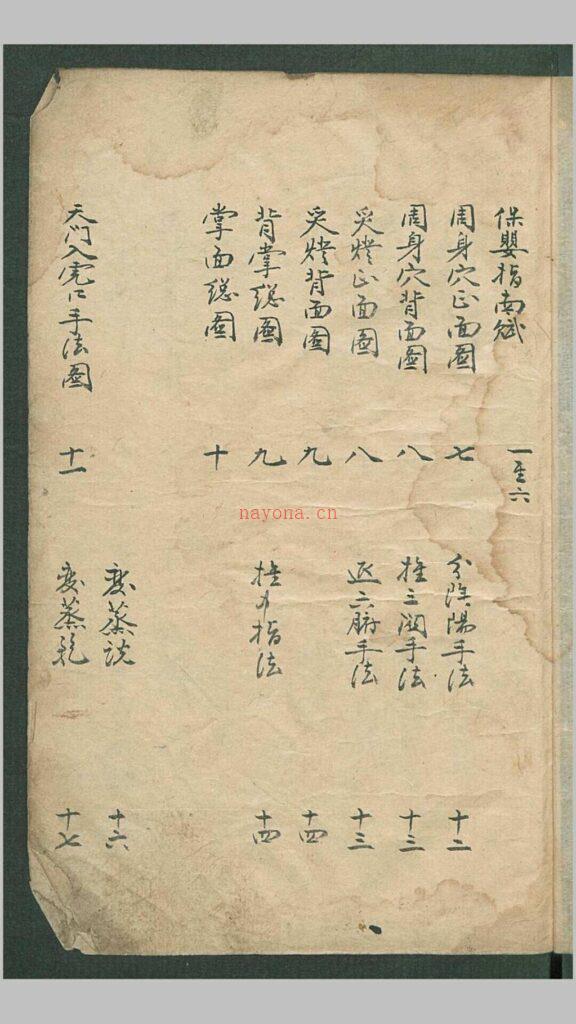 保嬰指南賦 一至六
周身穴正面圖 七
周身穴背面圖 八
炙燋正面圖 八
炙燋背面圖 九
背掌總圖 九
掌面總圖 十
天門入虎口手法圖 十一
分陰陽手法 十二
推三關手法 十三
退六腑手法 十三
十四
推五指法 十四
變蒸說 十六
變蒸 十七
nayona.cn